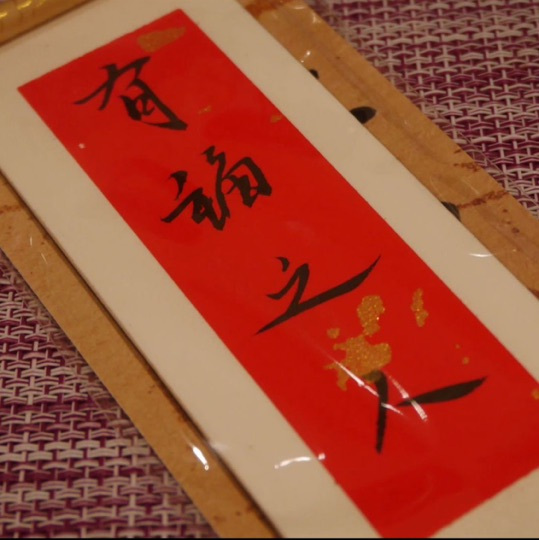 有福之人